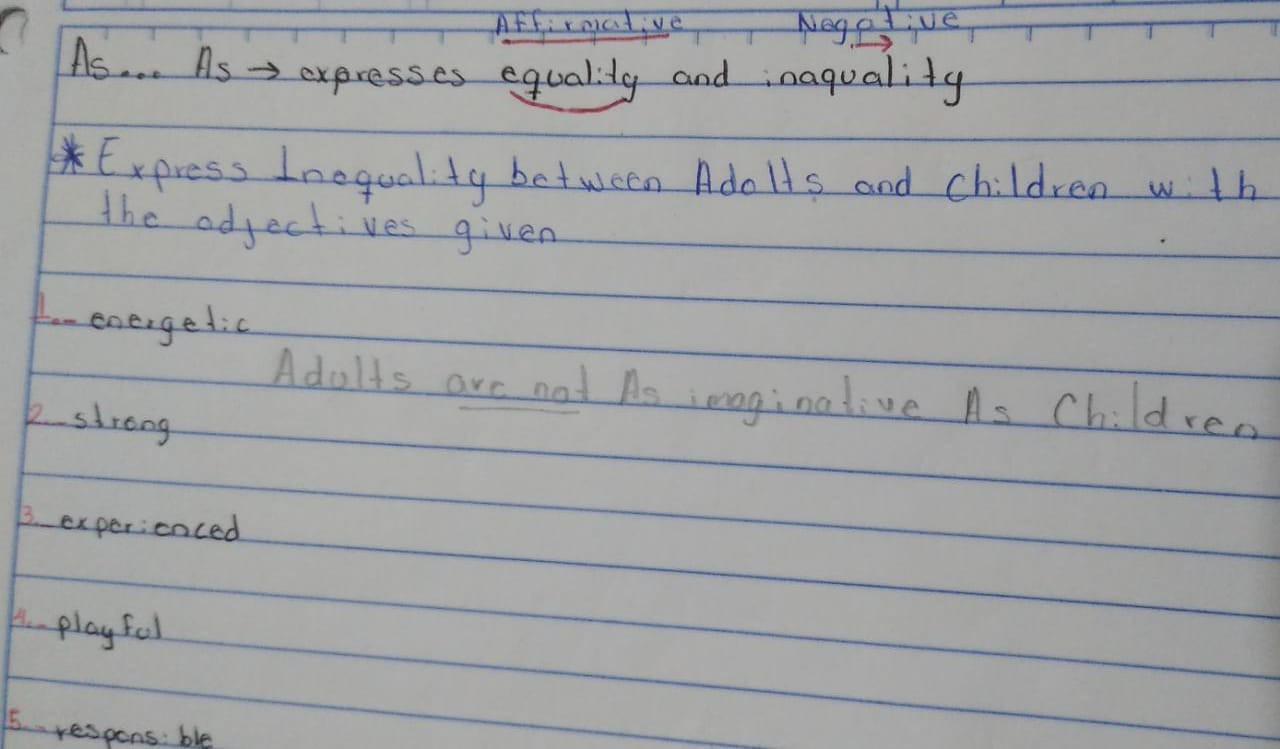 Affirmative Negative
As... As → expresses equality and inaquality
* Express Inequality between Adolts and children with
the adjectives given
1.- energetic
Adults are not As imaginative As Children
2.- strong
3.- experienced
4.- playful
5.- responsible